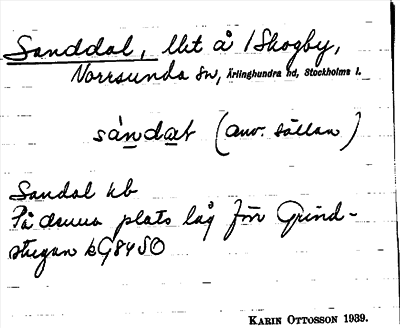 Sanddal, llkt å /Skogby,
Norrsunda sn, Ärlinghundra hd, Stockholms l.
sándat (anv. sällan)
Sandal kb
På denna plats låg förr Grind-
stugan kG84SO
KARIN OTTOSSON 1939.